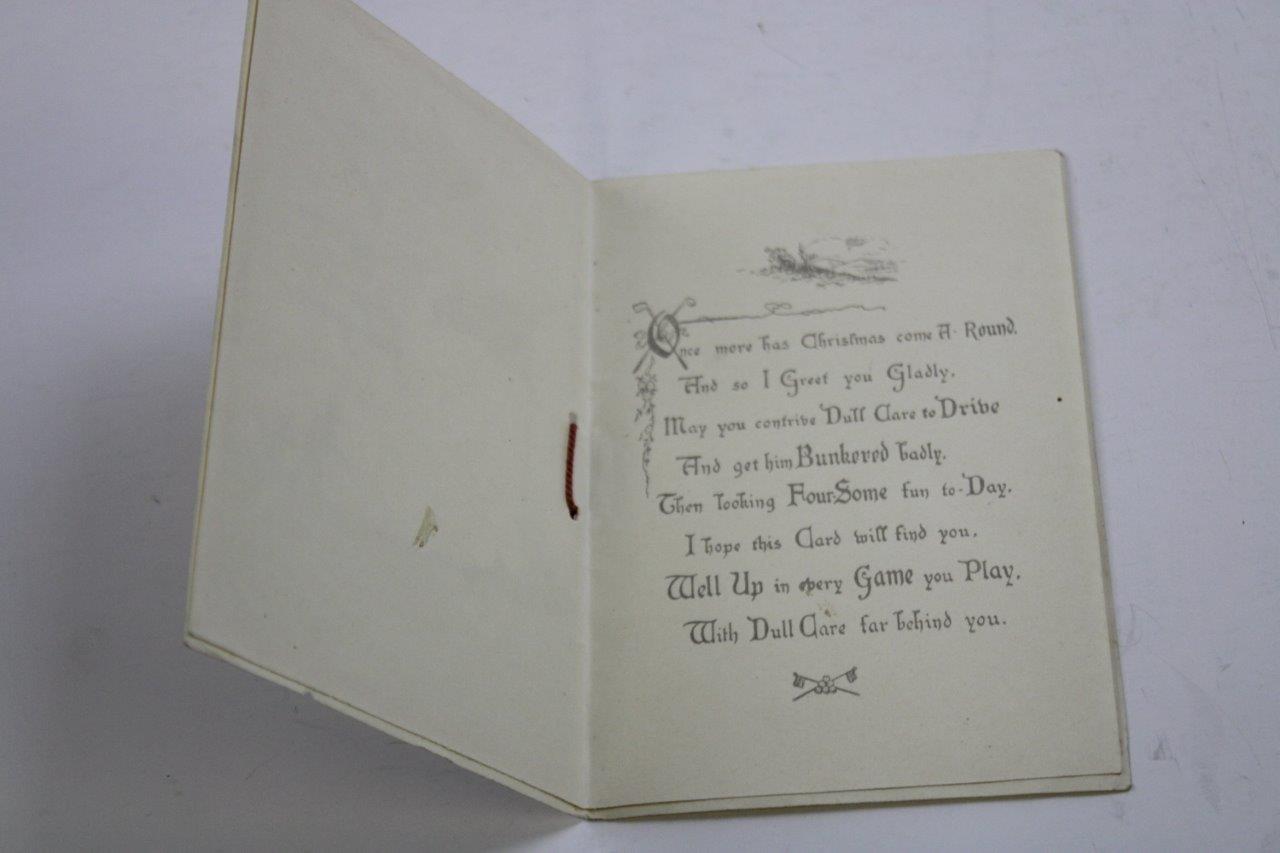 Once more has Christmas come A-Round.
And so I Greet you Gladly.
May you contrive Dull Care to Drive
And get him Bunkered badly.
Then looking Four-Some fun to-Day,
I hope this Card will find you,
Well Up in every Game you Play,
With Dull Care far behind you.